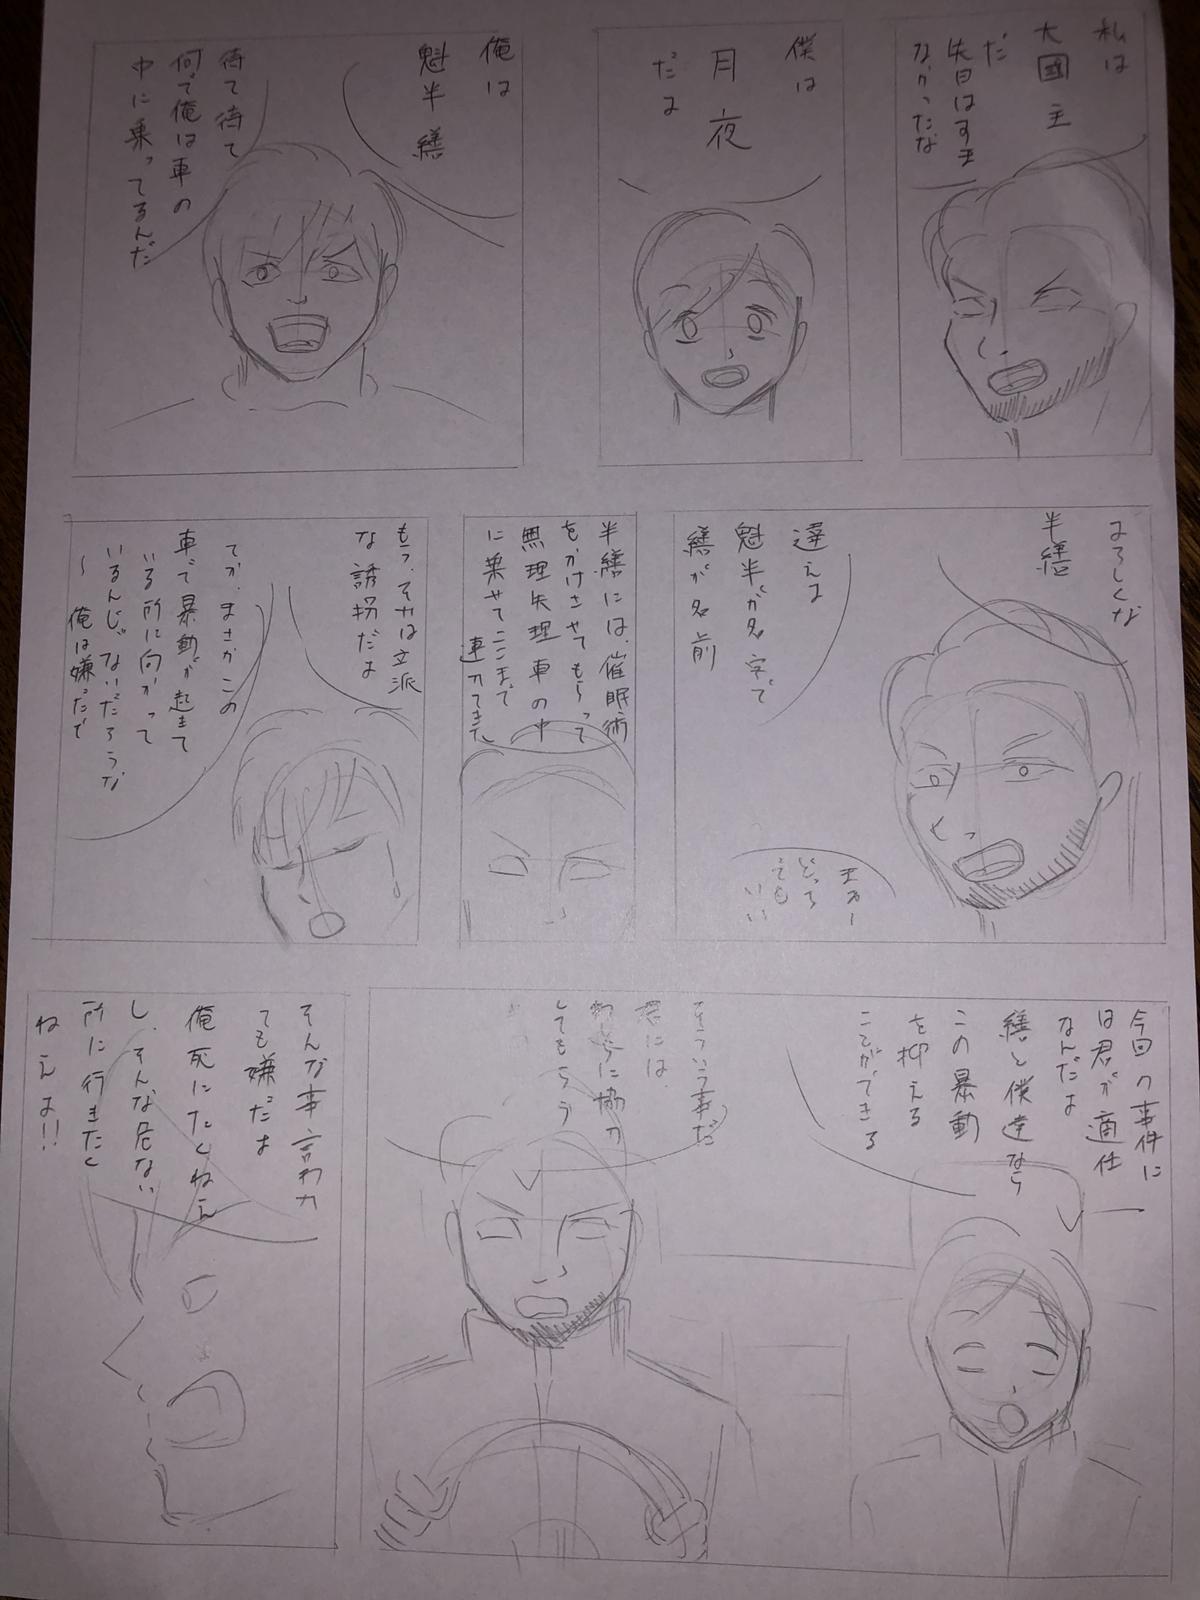 私は
大國主
だ
先日はすま
なかったな
僕は
月夜
だよ
俺は
魁半繕
待て待て
何で俺は車の
中に乗ってるんだ
よろしくな
半繕
違えよ
魁半が名字で
繕が名前
まあー
どっち
でも
いい
半繕には、催眠術
をかけさせてもらって
無理矢理車の中
に乗せてここまで
連れてきた
もう、それは立派
な誘拐だよ
てか、まさかこの
車で暴動が起きて
いる所に向かって
いるんじゃないだろうな
〜俺は嫌だで
今回の事件に
は君が適任
なんだよ
繕と僕達なら
この暴動
を抑える
ことができる
そういう事だ
君には
我々に協力
してもらう
そんな事言われ
ても嫌だよ
俺死にたくねえ
し、そんな危ない
所に行きたく
ねえよ!!